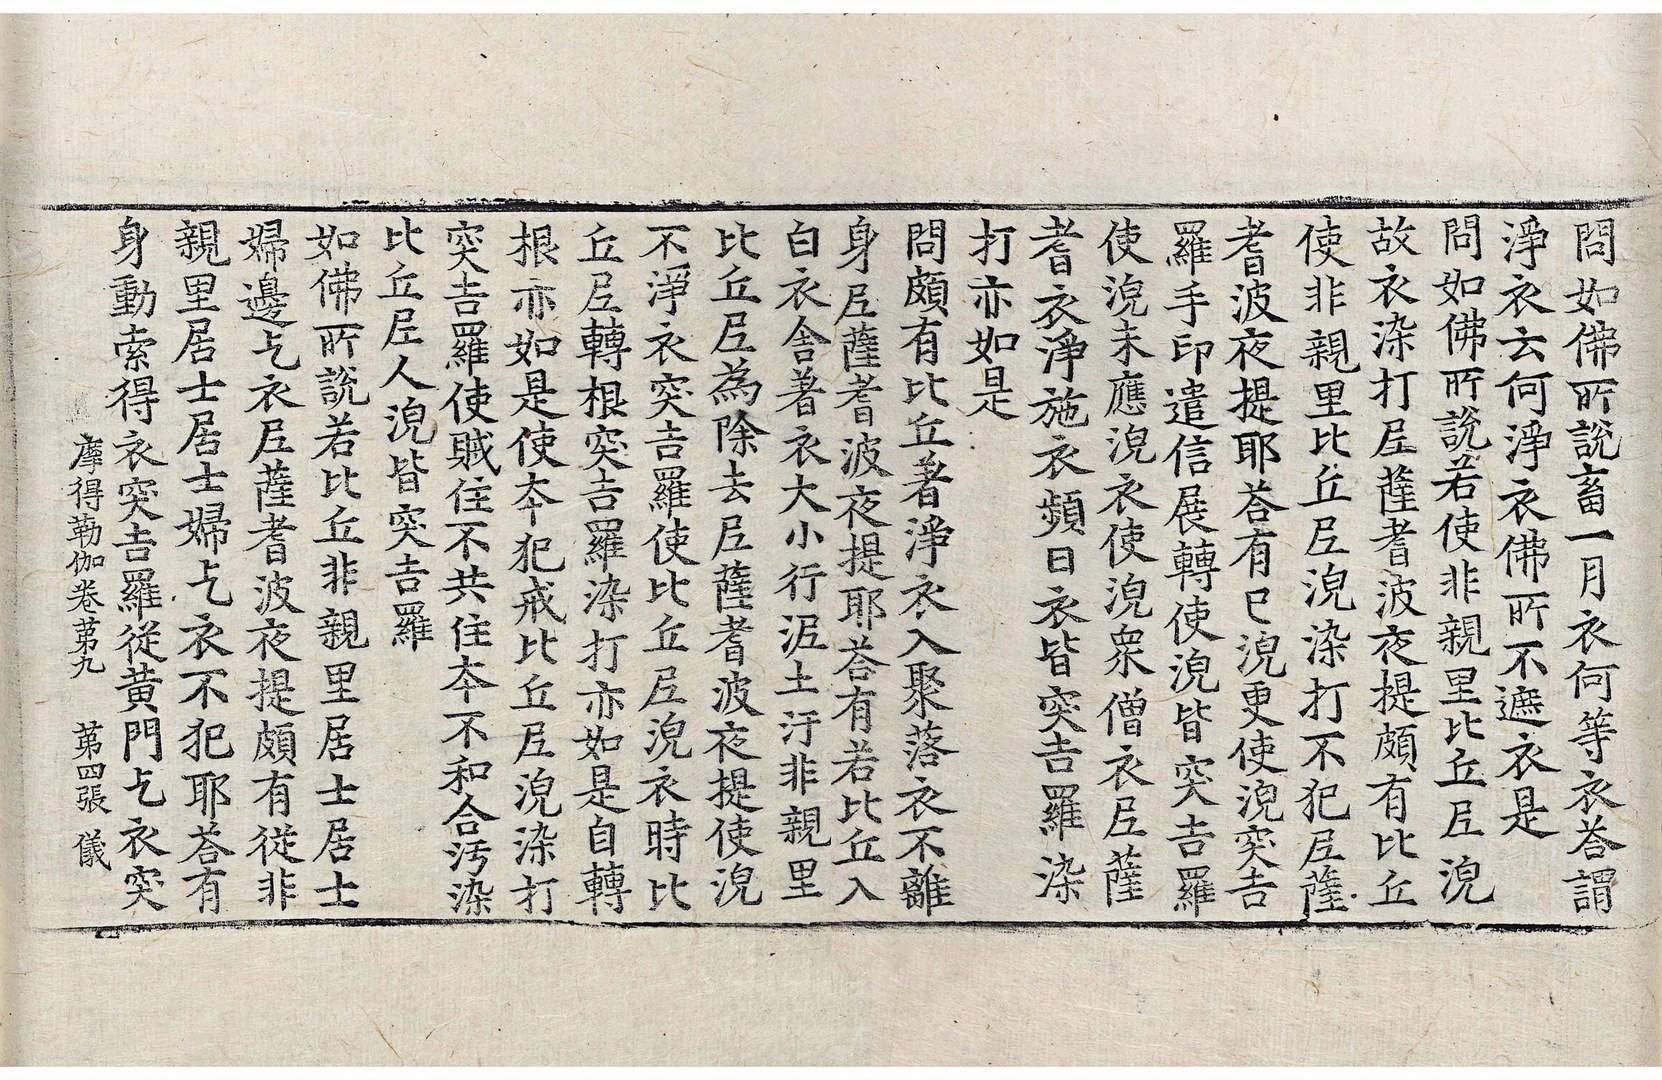 問如佛所說畜一月衣何等衣荅謂
淨衣云何淨衣佛所不遮衣是
問如佛所說若使非親里比丘尼浣
故衣染打尼薩耆波夜提頗有比丘
使非親里比丘尼浣染打不犯尼薩
耆波夜提耶荅有巳浣更使浣突吉
羅手印遣信展轉使浣皆突吉羅
使浣未應浣衣使浣衆僧衣尼薩
耆衣淨施衣頻日衣皆突吉羅染
打亦如是
問頗有比丘著淨衣入聚落衣不離
身尼薩耆波夜提耶荅有若比丘入
白衣舍著衣大小行泥土汙非親里
比丘尼為除去尼薩耆波夜提使浣
不淨衣突吉羅使比丘尼浣衣時比
丘尼轉根突吉羅染打亦如是自轉
根亦如是使夲犯戒比丘尼浣染打
突吉羅使賊住不共住夲不和合汚染
比丘尼人浣皆突吉羅
如佛所說若比丘非親里居士居士
婦邊乞衣尼薩耆波夜提頗有從非
親里居士居士婦乞衣不犯耶荅有
身動索得衣突吉羅從黃門乞衣突
摩得勒伽卷苐九 苐四張 儀